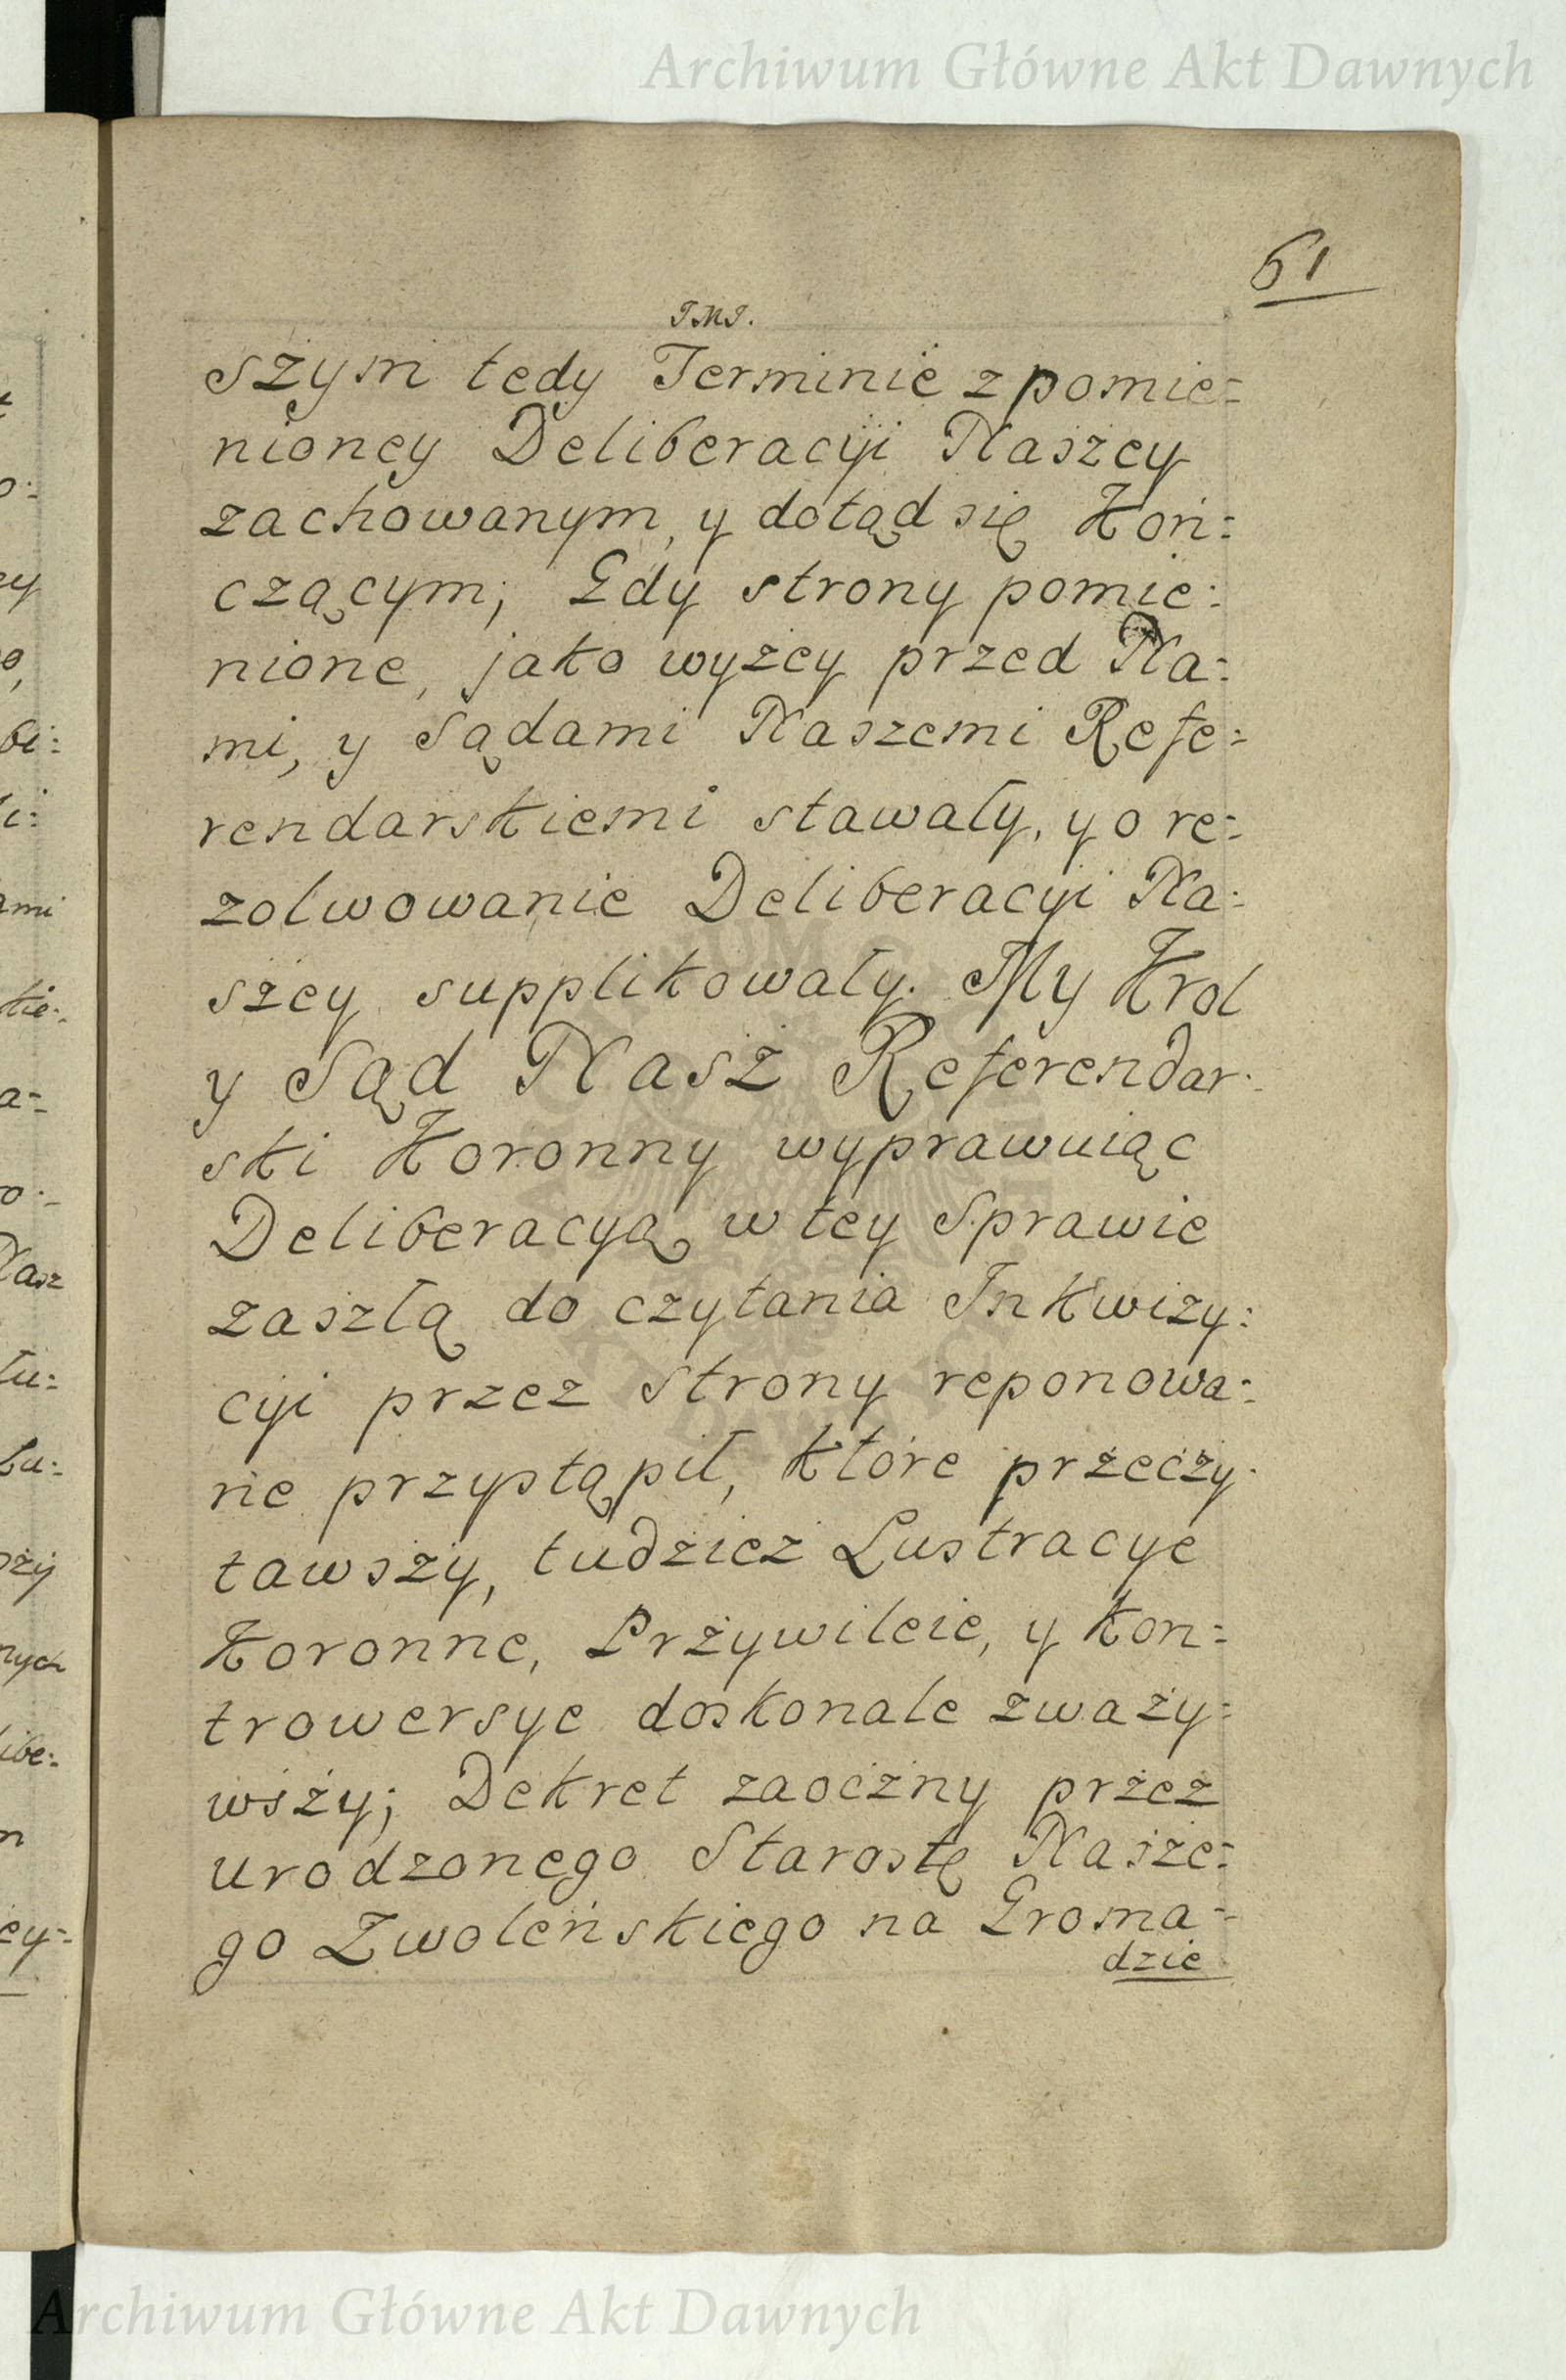 Archiwum Główne Akt Dawnych
61
JMJ.
szym tedy Terminie z pomie=
nioney Deliberacyi Naszey
zachowanym, y dotąd się Koń=
czącym; Gdy strony pomie=
nione, jako wyżey przed Na=
mi, y Sądami Naszemi Refe=
rendarskiemi stawały, y o re=
zolwowanie Deliberacyi Na=
szey supplikowały. My Krol
y Sąd Nasz Referendar=
ski Koronny wyprawuiąc
Deliberacyą w tey Sprawie
zaszłą do czytania Inkwizy=
cyi przez Strony reponowa=
ne przystąpił, które przeczy=
tawszy, tudzież Lustracye
Koronne, Przywileie, y Kon=
trowersye doskonale zważy=
wszy; Dekret zaoczny przez
urodzonego Starostę Nasze=
go Zwoleńskiego na Groma=
dzie
Archiwum Główne Akt Dawnych